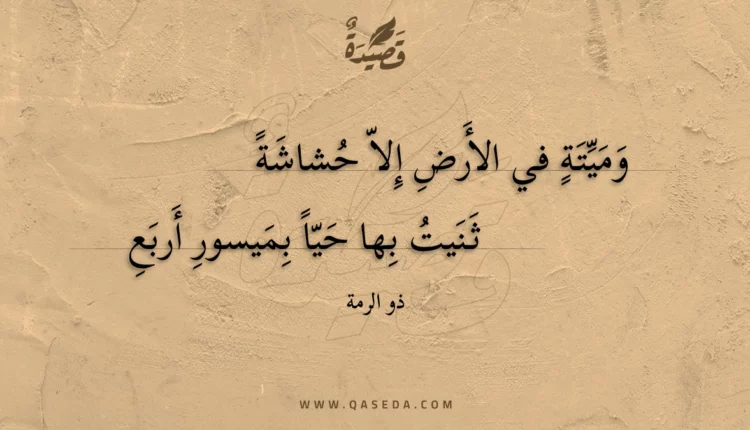 قَصِيدَةٌ
وَمَيِّتَةٍ في الأَرضِ إِلاّ حُشاشَةً
ثَنَيتُ بِها حَيّاً بِمَيسورِ أَربَعِ
ذو الرمة
WWW.QASEDA.COM